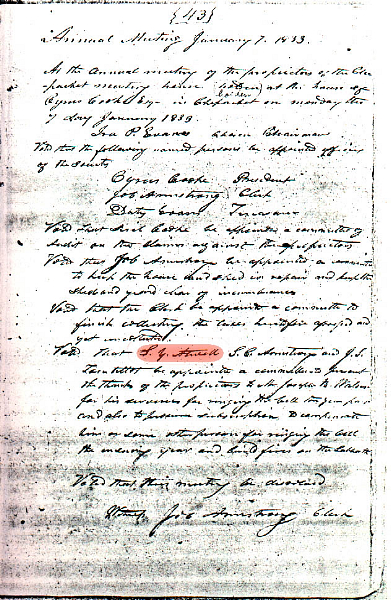 {43}
Annual Meeting January 7. 1833.
At the Annual meeting of the proprietors of the Che
pachet meeting house holden at the house of
Cyrus Cooke Esq in Chepachet on monday the
7 day January 1833
Ira P. Evans chosen Chairman
Voted that the following named persons be appointed officers
of the Society
Cyrus Cooke President
Job Armstrong Clerk
Duty Evans Treasurer
Voted that Cooke be appointed a committee to
on the claims against the proprietors
Voted that Job Armstrong be appointed a committee
to keep the house and shed in repair and keep the
shed and yard clear of incumbrance
Voted that the Clerk be appointed a committee to
finish collecting the taxes heretofore and
yet uncollected
Voted That S. Y. Atwell S. C. Armstrong and J. S.
be appointed a committee to present
the thanks of the proprietors to Mr Joseph
for his services for ringing the bell the year past
and also to subscription to compensate
him or some other person for ringing the bell
the ensuing year and build fires on the Sabbath
Voted that this meeting be dissolved
Witness Job Armstrong Clerk